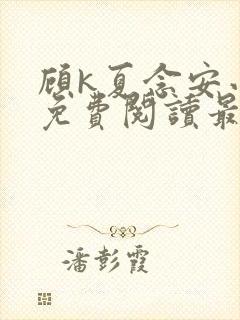 顾k夏念安
免費閱讀最
潘彭霞